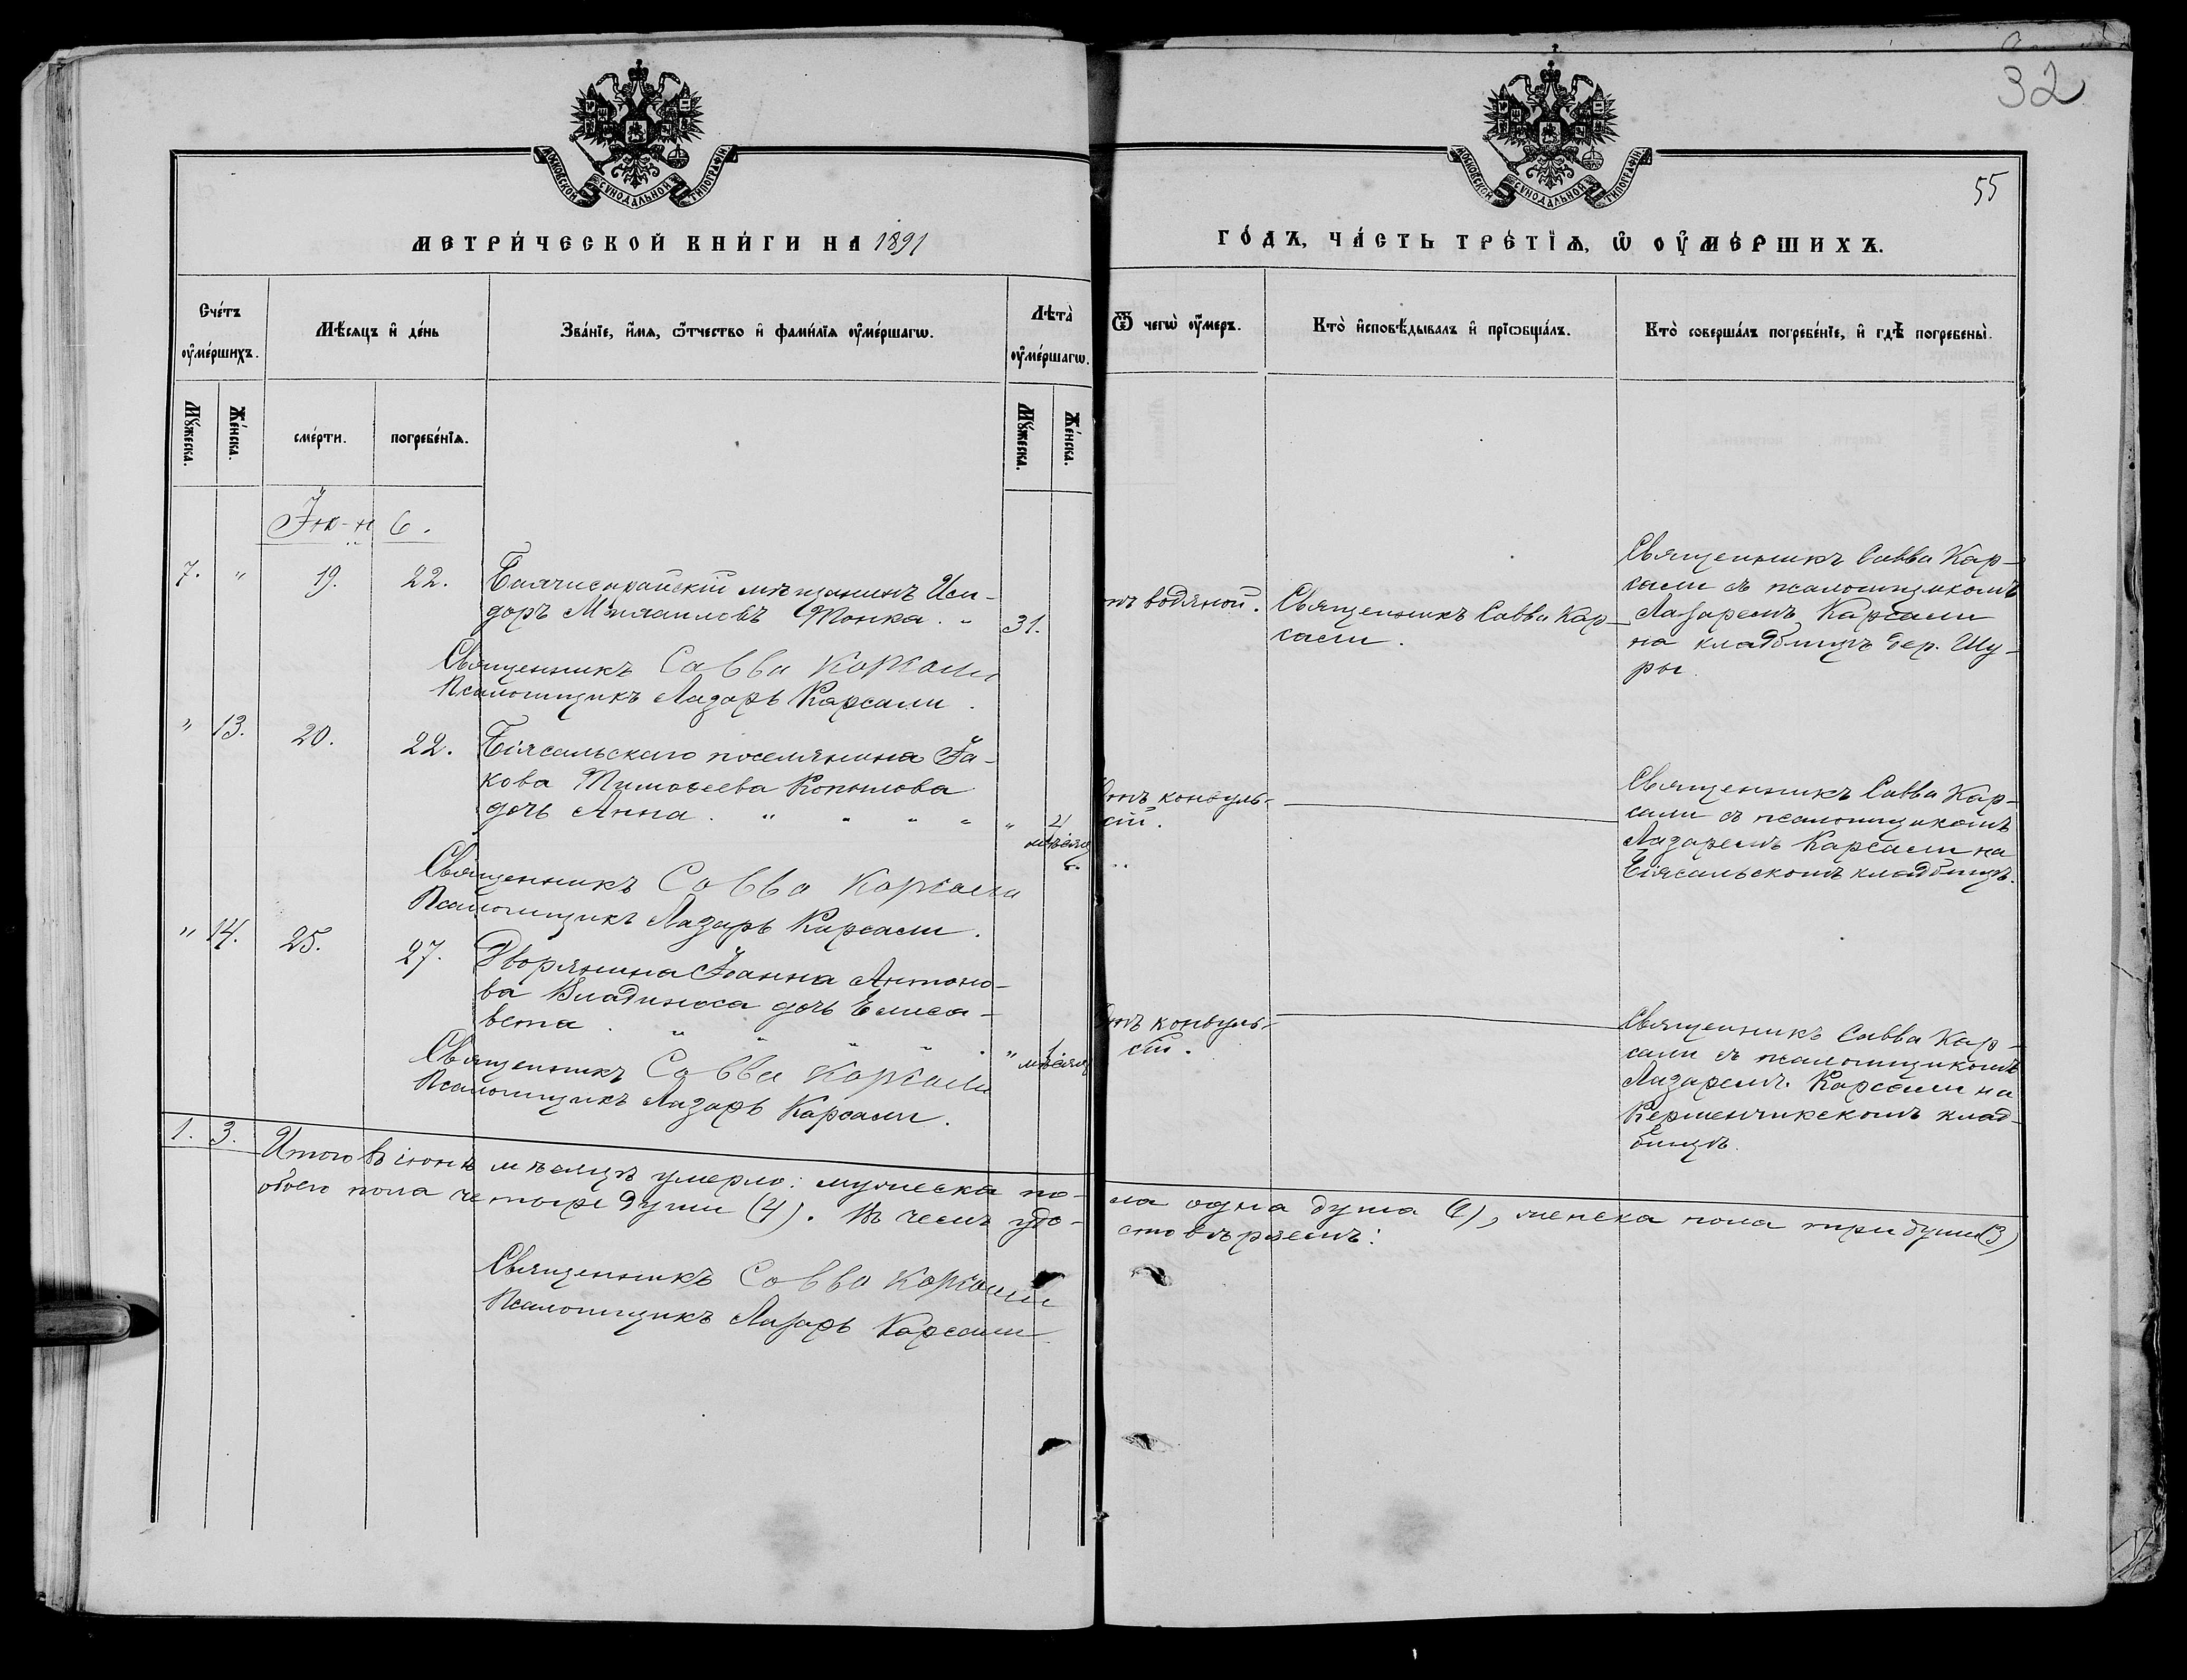 32
55
МОСКОВСКОЙ СѴНОДАЛЬНОЙ ТИПОГРАФІИ
МОСКОВСКОЙ СѴНОДАЛЬНОЙ ТИПОГРАФІИ
МЕТРИ́ЧЕСКОЙ КНИ́ГИ НА 1891
ГО́ДЪ, ЧА́СТЬ ТРЕ́ТЇѦ, Ѡ҆ ОУ҆МЕ́РШИХЪ.
Сче́тъ оу҆ме́ршихъ.
Мѣ́сяцъ и҆ де́нь
Зва́нїе, и҆́мѧ, ѻ҆́тчество и҆ фами́лїѧ оу҆ме́ршагѡ.
Лѣта̀ оу҆ме́ршагѡ.
Ѿ чегѡ̀ оу҆́меръ.
Кто̀ и҆сповѣ́дывалъ и҆ прїѡбща́лъ.
Кто̀ соверша́лъ погребе́нїе, и҆ гдѣ̀ погребены̀.
Мꙋ́жеска.
Же́нска.
сме́рти.
погребе́нїѧ.
Мꙋ́жеска.
Же́нска.
Ію-н 6.
7. " 19. 22. Бахчисарайскій мѣщанинъ Иси-
доръ Михаиловъ Тонка. " 31.
Священникъ Савва Карсали
Псаломщикъ Лазарь Карсали.
отъ водяной.
Священникъ Савва Кар-
сали.
Священникъ Савва Кар-
сали съ псаломщикомъ
Лазаремъ Карсали
на кладбищѣ дер. Шу-
ры.
" 13. 20. 22. Біясальскаго поселянина Іа-
кова Тимоѳеева Копылова
дочь Анна. " " " " " 4
мѣсяц.
Священникъ Савва Карсали
Псаломщикъ Лазарь Карсали.
Отъ конвуль-
сій.
Священникъ Савва Кар-
сали съ псаломщикомъ
Лазаремъ Карсали на
Біясальскомъ кладбищѣ.
" 14. 25. 27. Дворянина Іоанна Антоно-
ва Владиноса дочь Елиса-
вета. " " " " . " 1
мѣсяц
Священникъ Савва Карсали
Псаломщикъ Лазарь Карсали.
Отъ конвуль-
сій.
Священникъ Савва Кар-
сали съ псаломщикомъ
Лазаремъ Карсали на
Керменчикскомъ клад-
бищѣ.
1. 3. Итого въ іюнѣ мѣсяцѣ умерло: мужеска по-
ла одна душа (1), женска пола три души (3)
обоего пола четыре души (4). Въ чемъ удо-
стовѣряемъ:
Священникъ Савва Карсали
Псаломщикъ Лазарь Карсали